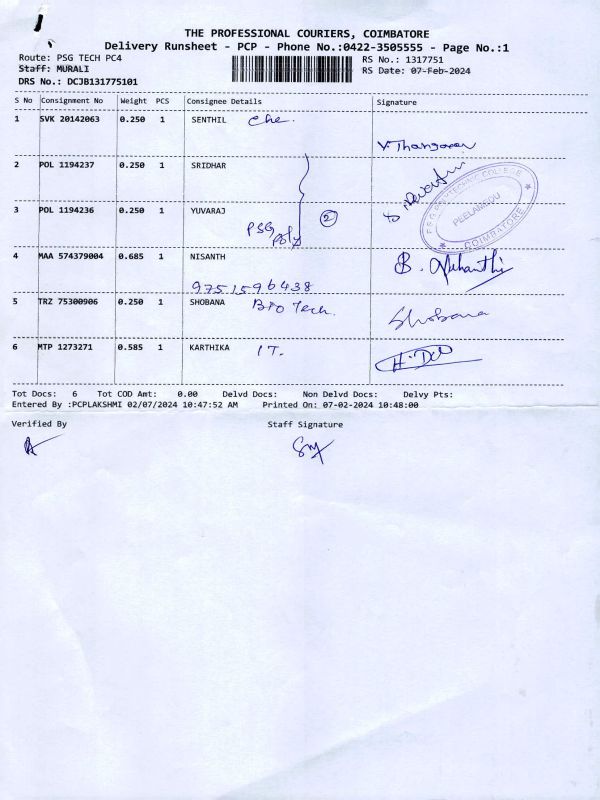 THE PROFESSIONAL COURIERS, COIMBATORE
Delivery Runsheet - PCP - Phone No.:0422-3505555 - Page No.:1
Route: PSG TECH PC4 RS No.: 1317751
Staff: MURALI RS Date: 07-Feb-2024
DRS No.: DCJB131775101
S No Consignment No Weight PCS Consignee Details Signature
1 SVK 20142063 0.250 1 SENTHIL Che.
V. Thangavel
2 POL 1194237 0.250 1 SRIDHAR
3 POL 1194236 0.250 1 YUVARAJ 2
PSG Poly
PSG POLYTECHNIC COLLEGE
PEELAMEDU
COIMBATORE
4 MAA 574379004 0.685 1 NISANTH B. Nishanthi
9751596438
5 TRZ 75300906 0.250 1 SHOBANA Bio Tech. Shobana
6 MTP 1273271 0.585 1 KARTHIKA IT.
Tot Docs: 6 Tot COD Amt: 0.00 Delvd Docs: Non Delvd Docs: Delvy Pts:
Entered By :PCPLAKSHMI 02/07/2024 10:47:52 AM Printed On: 07-02-2024 10:48:00
Verified By Staff Signature